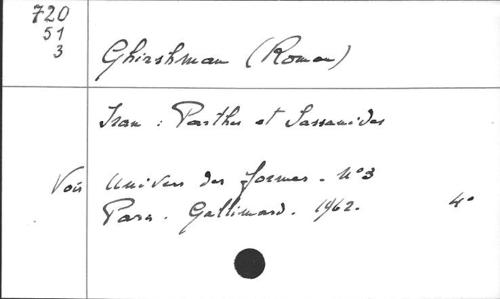 720
51
3
Ghirshman (Roman)
Iran : Parthes et Sassanides
Voir Univers des formes. N°3
Paris. Gallimard. 1962. 4°